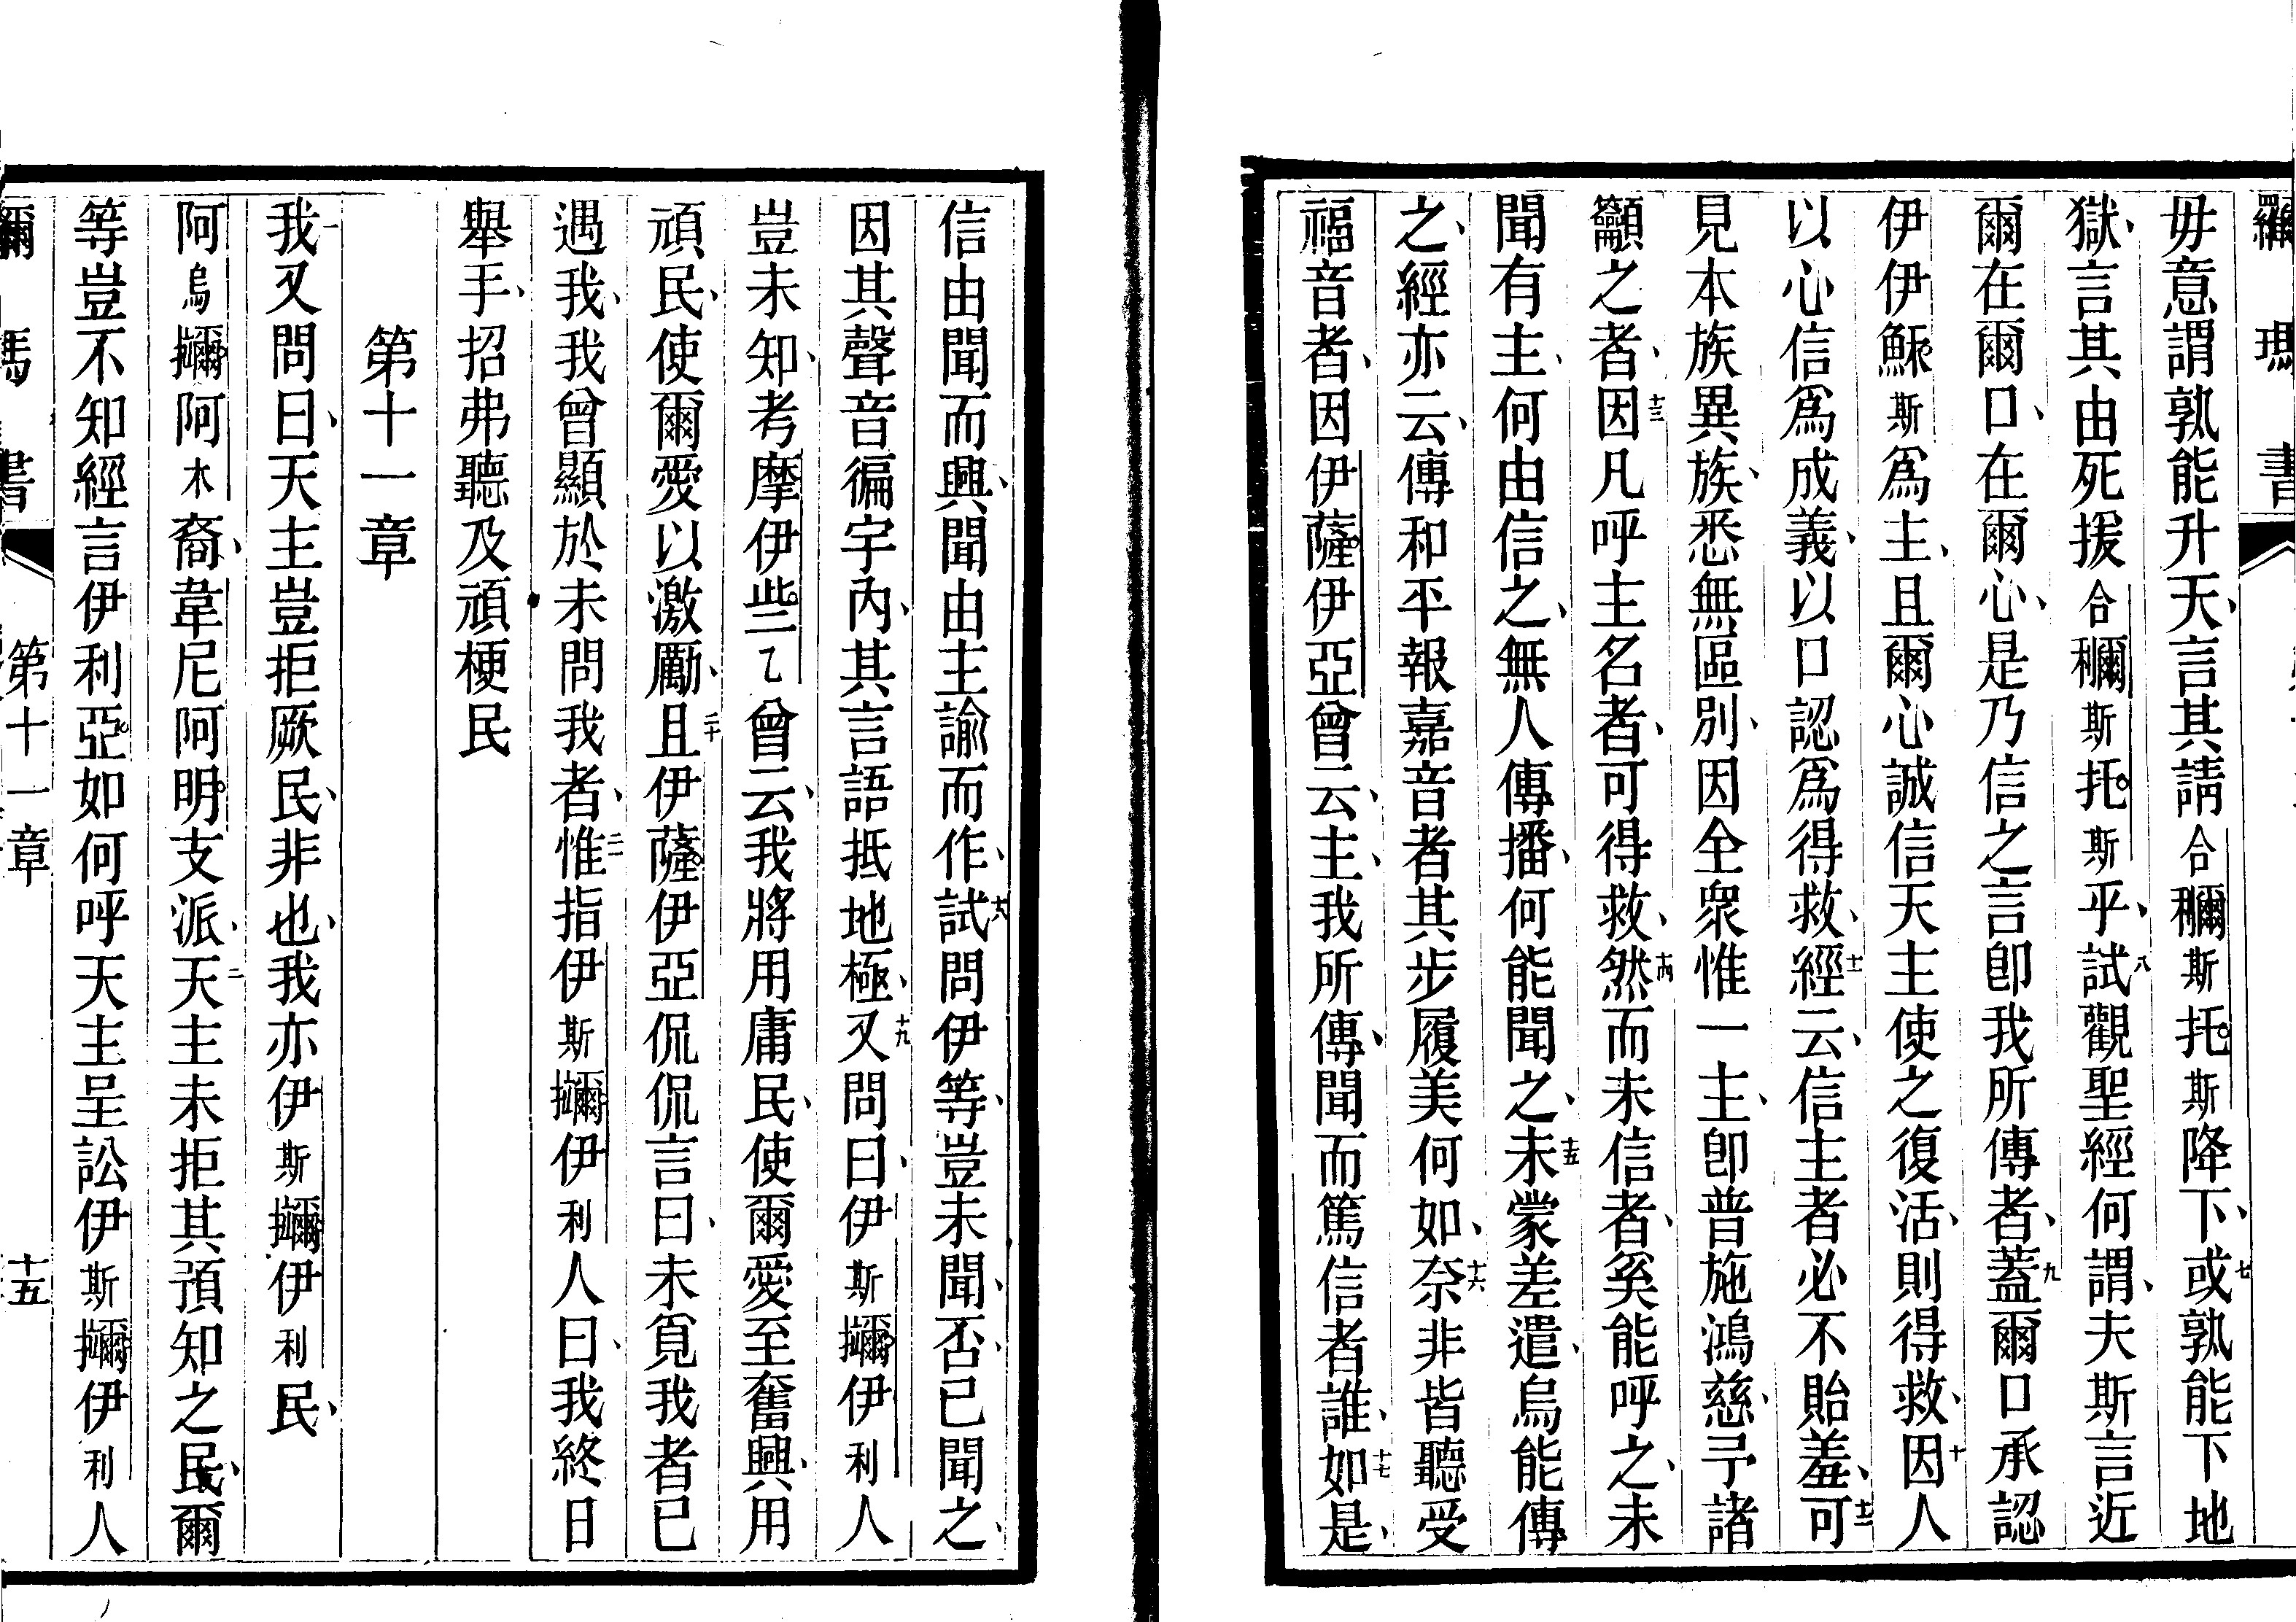 羅瑪書
毋意謂孰能升天、言其請合𥡝斯托斯降下、七或孰能下地
獄、言其由死援合𥡝斯托斯乎、八試觀聖經何謂、夫斯言近
爾在爾口、在爾心、是乃信之言卽我所傳者、九蓋爾口承認
伊伊穌斯爲主、且爾心誠信天主使之復活、則得救、十因人
以心信爲成義、以口認爲得救、十一經云、信主者必不貽羞、十二可
見本族異族、悉無區別、因全衆惟一主、卽普施鴻慈、予諸
籲之者、十三因凡呼主名者、可得救、十四然而未信者、奚能呼之、未
聞有主、何由信之、無人傳播、何能聞之、十五未蒙差遣、烏能傳
之、經亦云、傳和平報嘉音者其步履美何如、十六奈非皆聽受
福音者、因伊薩伊亞曾云、主、我所傳、聞而篤信者誰、十七如是、
信由聞而興、聞由主諭而作、十八試問伊等、豈未聞、否、已聞之、
因其聲音徧宇內、其言語抵地極、十九又問曰、伊斯𤄃伊利人
豈未知、考摩伊些乙曾云、我將用庸民、使爾愛至奮興、用
頑民、使爾愛以激勵、二十且伊薩伊亞侃侃言曰、未覓我者已
遇我、我曾顯於未問我者、二一惟指伊斯𤄃伊利人曰、我終日
舉手、招弗聽及頑梗民
第十一章
一我又問曰、天主豈拒厥民、非也、我亦伊斯𤄃伊利民、
阿烏𤄃阿木裔、韋尼阿明支派、二天主未拒其預知之民、爾
等豈不知經言伊利亞如何呼天主呈訟伊斯𤄃伊利人
瑪書
第十一章
十五